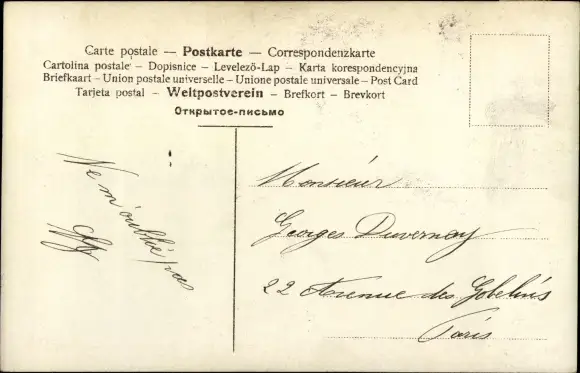 Carte postale — Postkarte — Correspondenzkarte
Cartolina postale — Dopisnice — Levelező-Lap — Karta korespondencyjna
Briefkaart — Union postale universelle — Unione postale universale — Post Card
Tarjeta postal — Weltpostverein — Brefkort — Brevkort
Открытое-письмо
Ne m'oublie pas
Monsieur
Georges Duvernoy
22 Avenue des Gobelins
Paris